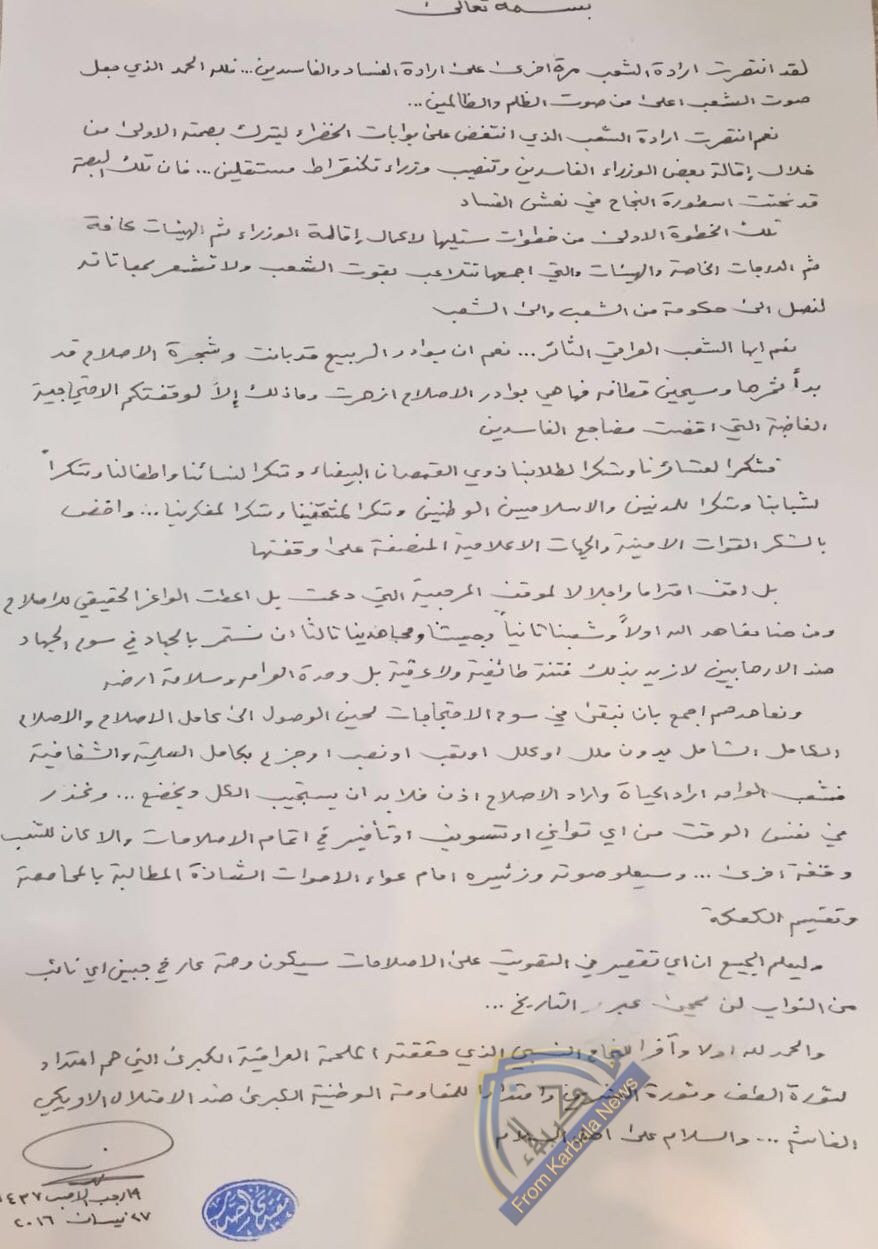 بسمه تعالى
لقد انتصرت ارادة الشعب مرة اخرى على ارادة الفساد والفاسدين... فلله الحمد الذي جعل
صوت الشعب اعلى من صوت الظلم والظالمين...
نعم انتصرت ارادة الشعب الذي انتفض على بوابات الخضراء ليترك بصمته الاولى من
خلال إقالة بعض الوزراء الفاسدين وتنصيب وزراء تكنقراط مستقلين... فان تلك البصمة
قد نحتت اسطورة النجاح في نعش الفساد
تلك الخطوة الاولى من خطوات ستليها لاكمال إقالة الوزراء ثم الهيئات كافة
ثم الدرجات الخاصة والهيئات والتي اجمعها تتلاعب بقوت الشعب ولا تشعر بمعاناته
لنصل الى حكومة من الشعب والى الشعب
نعم ايها الشعب العراقي الثائر... نعم ان بوادر الربيع قد بانت وشجرة الاصلاح قد
بدأ ثمرها وسيحين قطافه فها هي بوادر الاصلاح ازهرت وما ذلك إلا لوقفتكم الاحتجاجية
الغاضبة التي اقضت مضاجع الفاسدين
فشكرا لعشائرنا وشكرا لطلابنا ذوي القمصان البيضاء وشكرا لنسائنا واطفالنا وشكراً
لشبابنا وشكرا للمدنيين والاسلاميين الوطنيين وشكرا لمثقفينا وشكرا لمفكرينا... واخص
بالشكر القوات الامنية والجهات الاعلامية المنصفة على وقفتها
بل اقف احتراما واجلالا لموقف المرجعية التي دعت بل اعطت الواعز الحقيقي للاصلاح
ومن هنا نعاهد الله اولاً وشعبنا ثانياً وجيشنا ومجاهدينا ثالثا ان نستمر بالجهاد في سوح الجهاد
ضد الارهابيين لا نريد بذلك فتنة طائفية ولا عرقية بل وحدة العراق وسلامة ارضه
ونعاهدهم اجمع بان نبقى في سوح الاحتجاجات لحين الوصول الى كامل الاصلاح والاصلاح
الكامل الشامل بدون ملل او كلل او تعب او نصب او جزع بكامل السلمية والشفافية
فشعب العراق اراد الحياة واراد الاصلاح اذن فلا بد ان يستجيب الكل ويخضع... ونحذر
في نفس الوقت من اي تواني او تسويف او تأخير في اتمام الاصلاحات والا كان للشعب
وقفة اخرى... وسيعلو صوته وزئيره امام عواء الاصوات الشاذة المطالبة بالمحاصصة
وتقسيم الكعكة
وليعلم الجميع ان اي تقصير في التصويت على الاصلاحات سيكون وصمة عار في جبين اي نائب
من النواب لن تمحى عبر التاريخ...
والحمد لله اولا وآخرا للنجاح النسبي الذي حققته الملحمة العراقية الكبرى التي هم امتداد
لثورة الطف وثورة العشرين وامتدادا للمقاومة الوطنية الكبرى ضد الاحتلال الامريكي
الغاشم... والسلام على اهل السلام
١٩ رجب الاصب ١٤٣٧
٢٧ نيسان ٢٠١٦
مقتدى الصدر
من كربلاء
From Karbala News